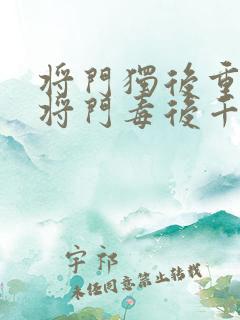 將門獨後重
將門毒後千
宇祁
未經同意禁止轉載